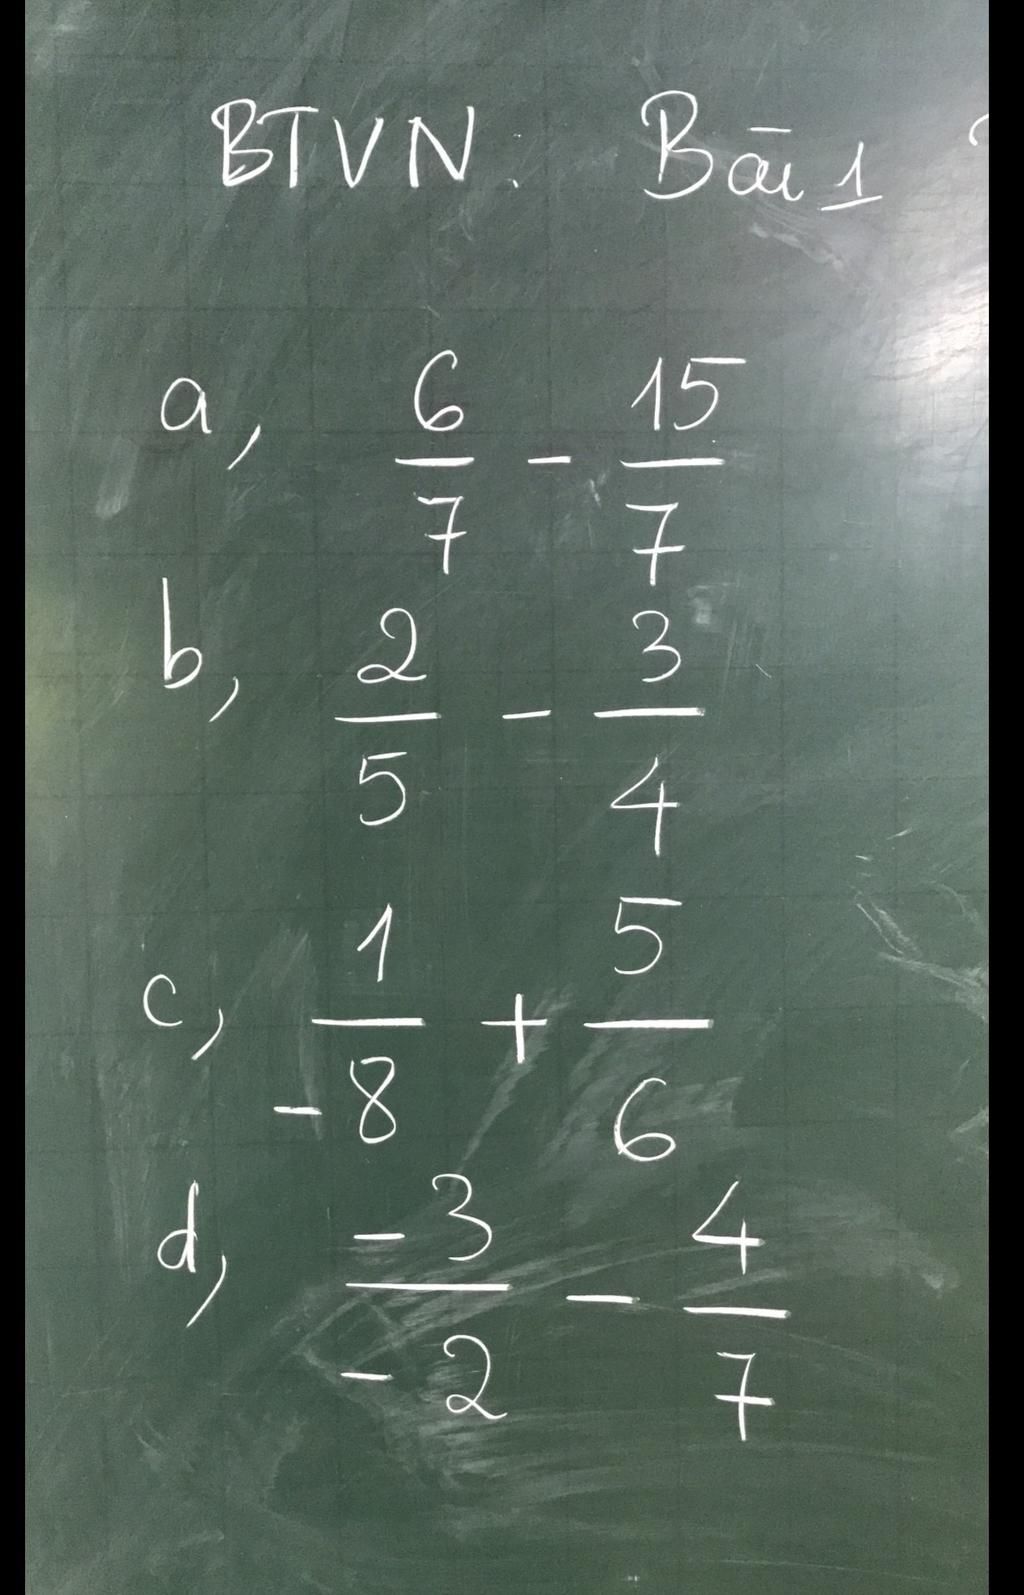 BTVN. Bài 1
a, 6/7 - 15/7
b, 2/5 - 3/4
c, 1/-8 + 5/6
d, -3/-2 - 4/7